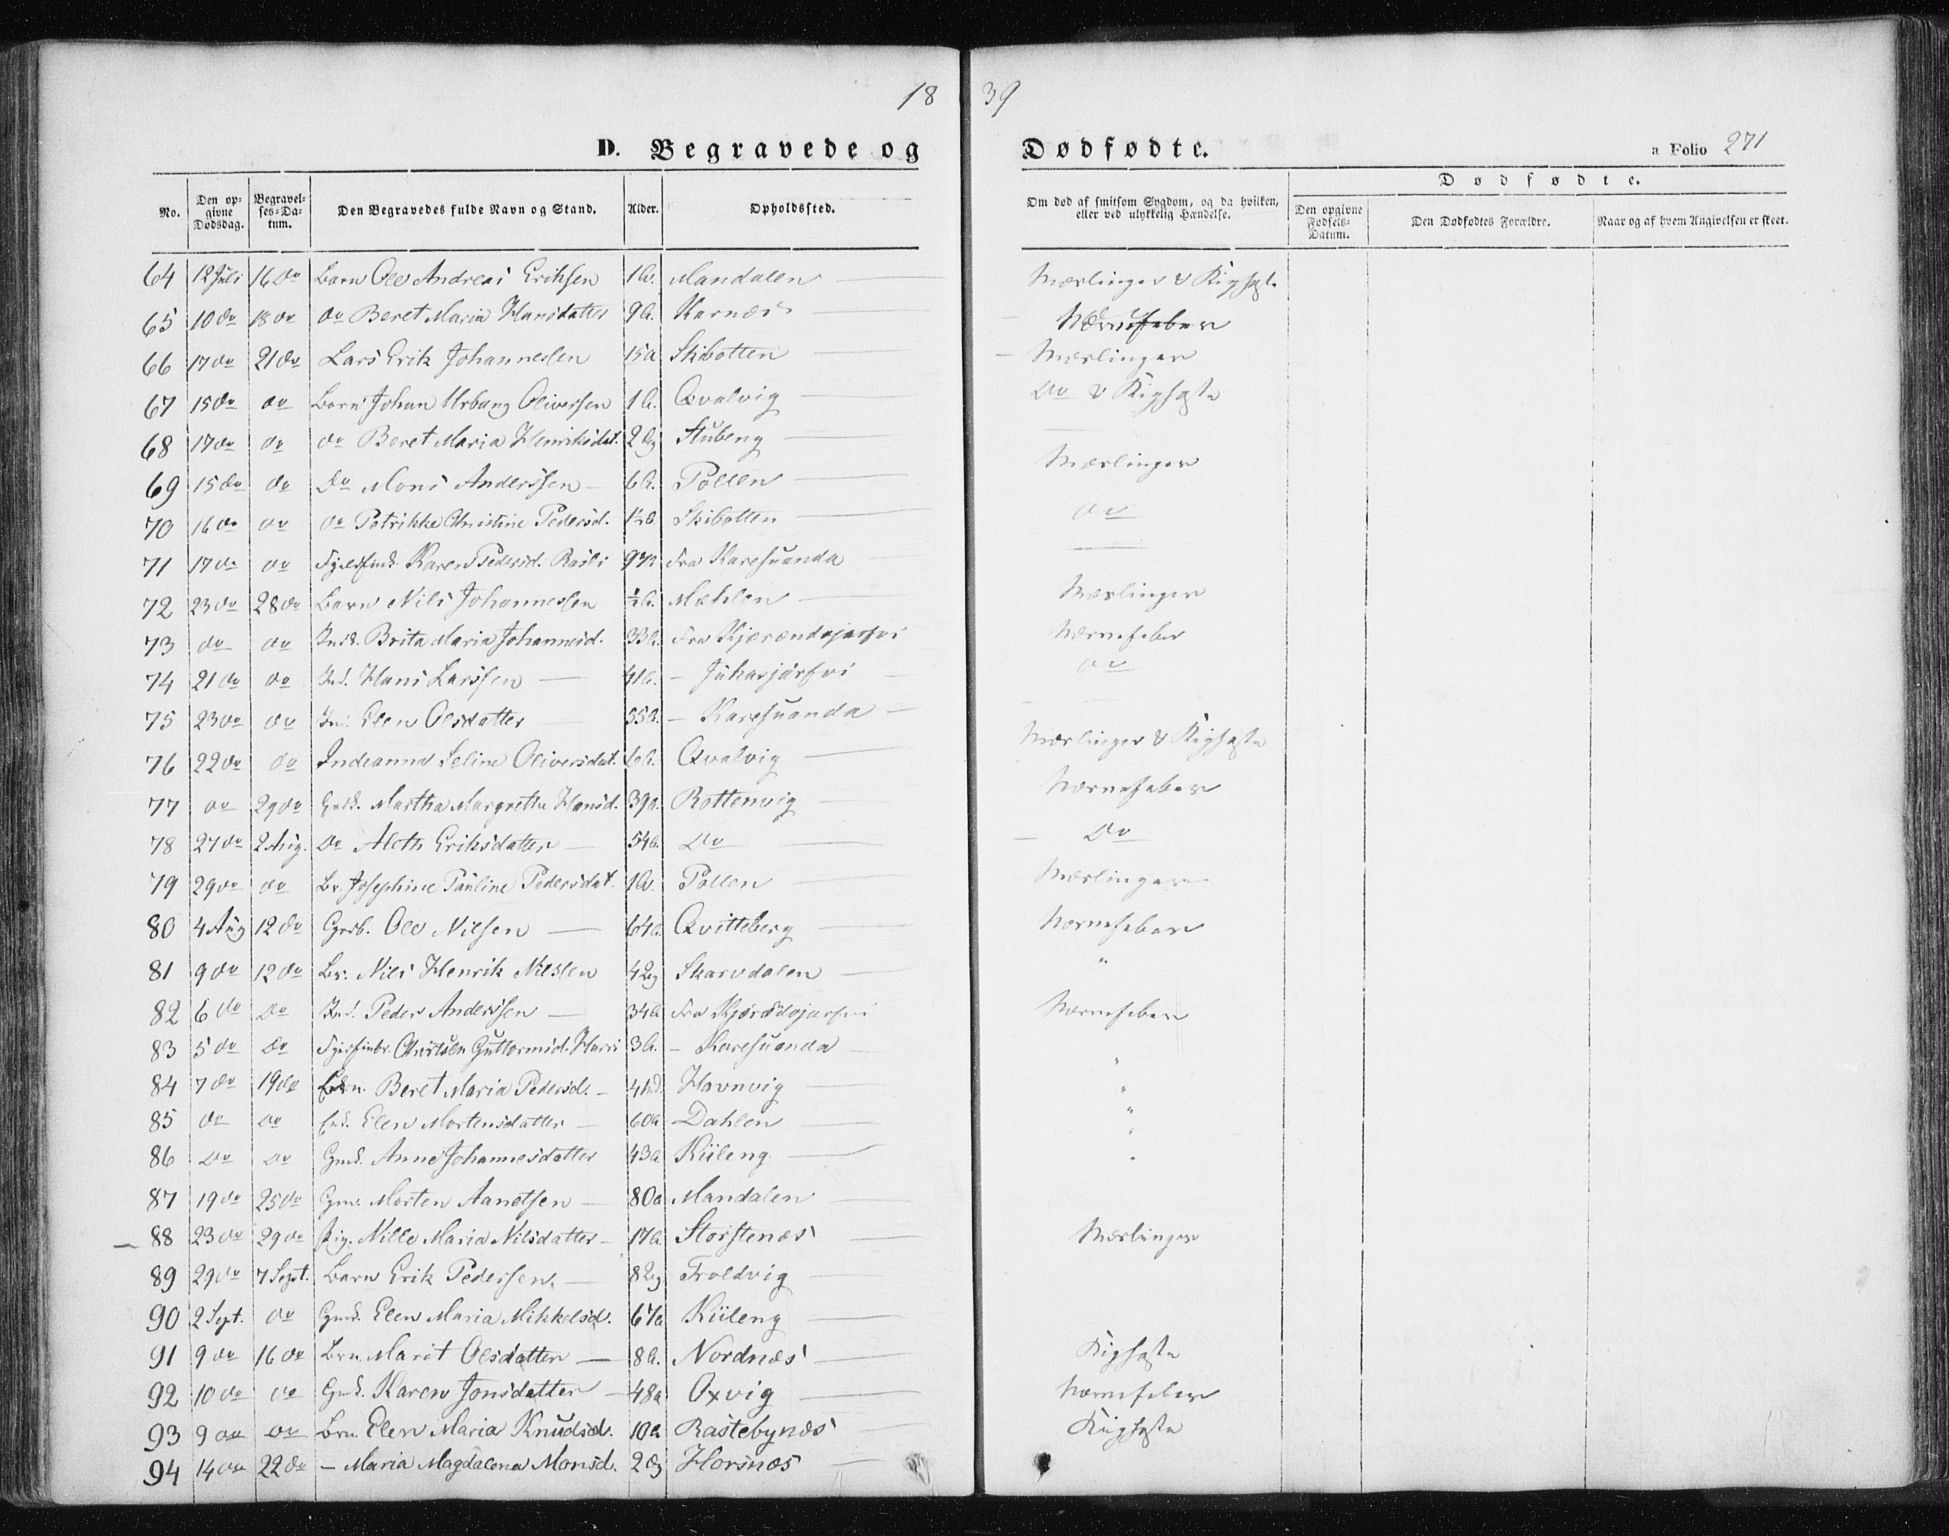 18 39
D. Begravede og Dødfødte.
a Folio 271
No. Den opgivne Dødsdag. Begravelses-Datum. Den Begravedes fulde Navn og Stand. Alder. Opholdssted. Om død af smitsom Sygdom, og da hvilken, eller ved ulykkelig Hændelse. Dødfødte. Den opgivne Fødsels-Datum. Den Dødfødtes Forældre. Naar og af hvem Angivelsen er skeet.
64 12 Juli 16 do Barn Ole Andreas Eriksen 1 a. Mandalen Mæslinger & Kighoste
65 10 do 18 do do Beret Maria Hansdatter 9 a. Karnæs Nervefeber
66 17 do 21 do Lars Erik Johannessen 15 a Skibotten Mæslinger
67 15 do do Barn Johan Urbang Oliverssen 1 a. Qvalvig Do & Kighoste
68 17 do do do Beret Maria Henriksdat. 2 Stubeng
69 15 do do Do Mons Anderssen 6 a. Pollen Mæslinger
70 16 do do do Petrikke Christine Pedersd. Skibotten do
71 17 do do Karen Pedersd. Fra Karesuanda
72 23 do 28 do Barn Nils Johannessen ½ a. Mæhlen Mæslinger
73 do do Brita Maria Johannesd. 33 a. Fra Nervefeber
74 21 do do Hans Larssen 41 a. - Jukasjärfvi do
75 23 do do Elen Olsdatter 55 a. - Karesuanda
76 22 do do Indianna Seline Oliversdat. 6 a. Qvalvig Mæslinger & Kighoste
77 do 29 do Martha Margrethe Hansd. 39 a. Rottenvig Nervefeber
78 27 do 2 Aug. Do Aleth Eriksdatter 54 a. Do Do
79 29 do do Br. Josephine Pauline Pedersdat. 1 a. Pollen Mæslinger
80 4 Aug 12 do Ole Nilsen 64 a. Qvitteberg Nervefeber
81 9 do 12 do Br. Nils Henrik Nilsen 4 Skarvdalen "
82 6 do Do Peder Anderssen 34 a Fra Nervefeber
83 5 do Do Guttormsd. 3 a. - Karesuanda "
84 7 do 19 do Beret Maria Pedersd. Havnvig "
85 do do Elen Mortensdatter 60 a Dahlen "
86 do do Gmd. Anne Johannesdatter 43 a Kiileng "
87 19 do 25 do Gmd. Morten Aanetsen 80 a Mandalen
88 23 do 29 do Pig. Nille Maria Nilsdatter 17 a. Storstenæs Mæslinger
89 29 do 7 Sept. Barn Erik Pedersen 8 Troldvig
90 2 Sept. do Gmd. Elen Maria Mikkelsd. 67 a Kiileng
91 9 do 16 do Brn. Marit Olsdatter 8 a. Nordnæs Kighoste
92 10 do do Gmd. Karen Jonsdatter 48 a Oxvig Nervefeber
93 9 do do Brn. Elen Maria Knudsd. 10 a Rastebynæs Kighoste
94 14 do 22 do - Maria Magdalena Monsd. 2 Horsnæs